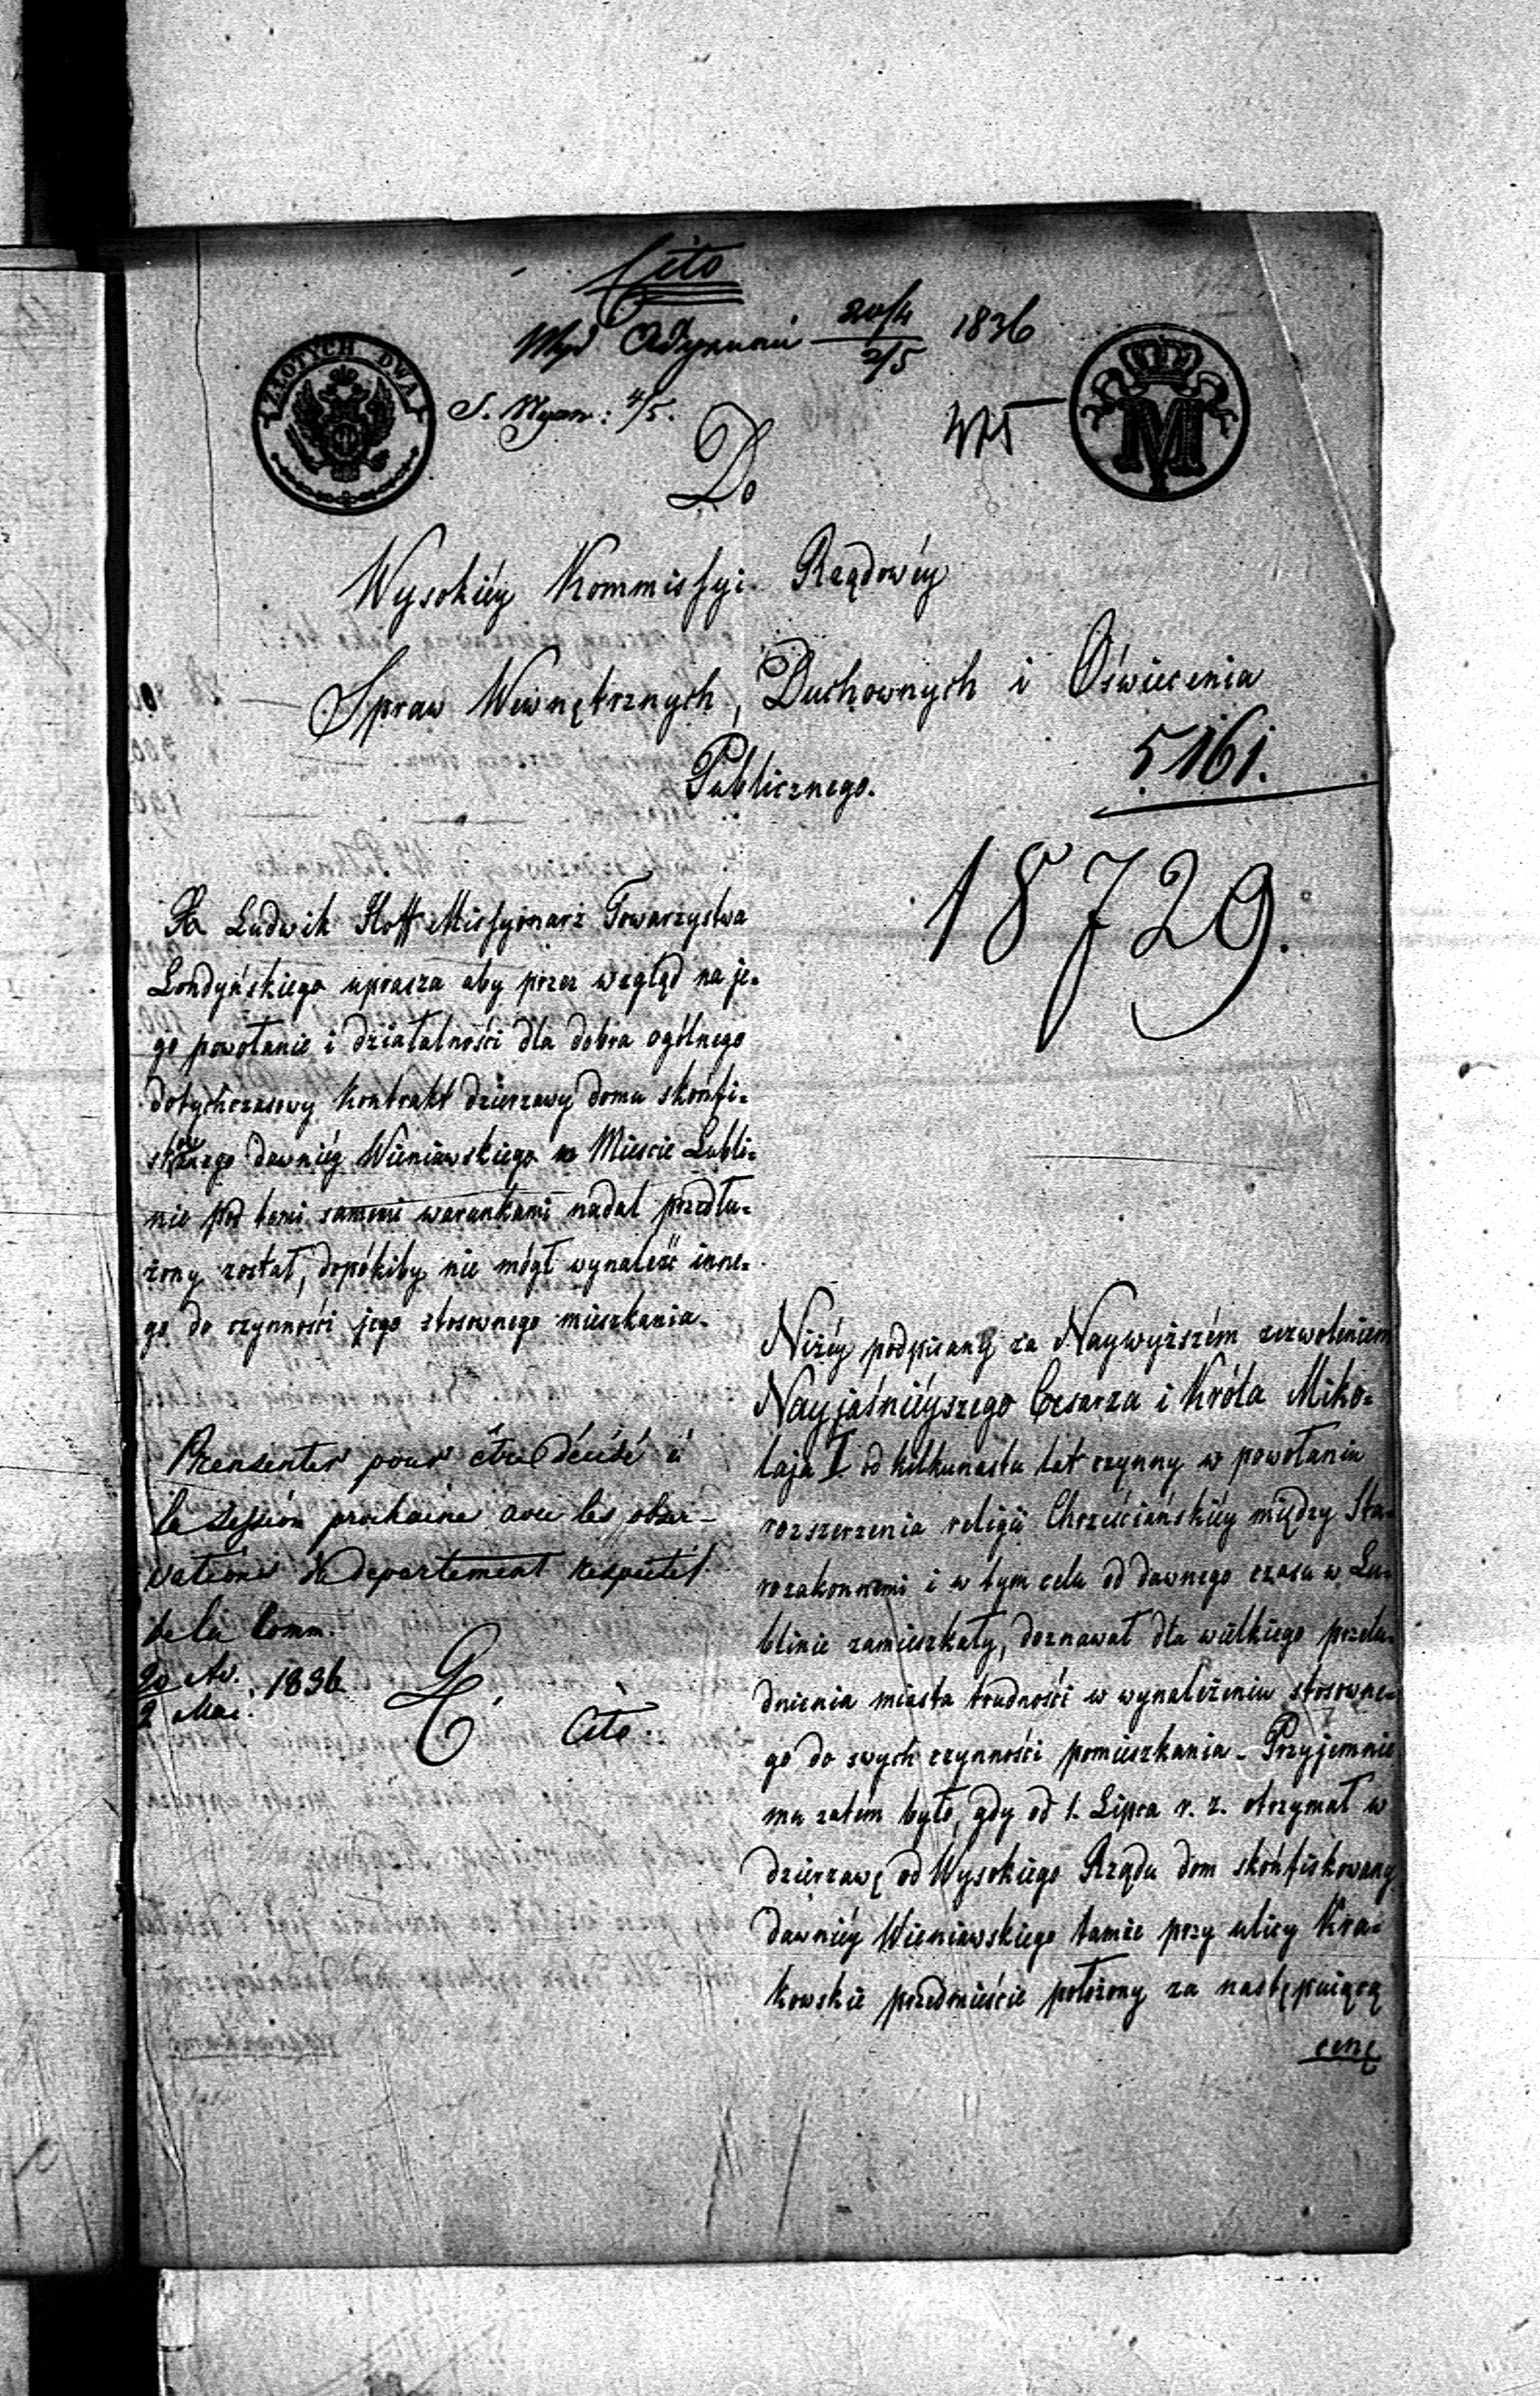 Cito
20/4 2/5 1836
ZŁOTYCH DWA
4/5.
M
Do
Wysokiéy Kommissyi Rządowéy
Spraw Wewnętrznych, Duchownych i Oświecenia
Publicznego.
5161.
18729.
X Ludwik Hoff Missyonarz Towarzystwa
Londyńskiego uprasza aby przez wzgląd na je-
go powołanie i działalności dla dobra ogólnego
dotychczasowy kontrakt dzierzawy domu skonfi-
skowanego dawniéy Wieniawskiego w Miescie Lubli-
nie pod temi samemi warunkami nadal przedłu-
żony został, dopókiby nie mógł wynaleść inne-
go do czynności jego stosownego mieszkania.
Presenter pour être décidé à
la session prochaine avec les obser-
vations du departement respectif
de la Comm.
20 Av. 2 Mai. 1836
Cito.
Niżéy podpisany za Naywyższém zezwoleniem
Nayjaśniéyszego Cesarza i Króla Miko-
łaja I. od kilkunastu lat czynny w powołaniu
rozszerzenia religii Chrześciańskiéy między Sta-
rozakonnemi i w tym celu od dawnego czasu w Lu-
blinie zamieszkały, doznawał dla wielkiego przelu-
dnienia miasta trudności w wynalezieniu stosowne-
go do swych czynności pomieszkania. Przyjemnie
mu zatém było, gdy od 1. Lipca r. z. otrzymał w
dzierzawę od Wysokiego Rządu dom skonfiskowany
dawniéy Wieniawskiego tamże przy ulicy Kra-
kowskie przedmieście położony za następuiącą
cenę